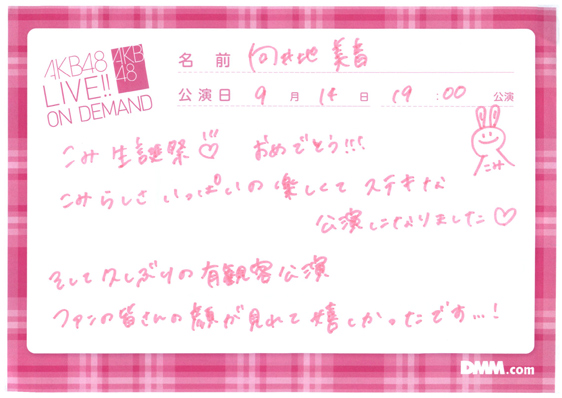 AKB48
LIVE!!
ON DEMAND
AKB
48
名前 向井地 美音
公演日 9月14日 19:00公演
こみ生誕祭!!!♡ おめでとう!!!
こみらしさいっぱいの楽しくてステキな
公演になりました♡
こみ
そして久しぶりの有観客公演
ファンの皆さんの顔が見れて嬉しかったです...!
DMM.com